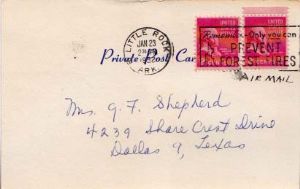 LITTLE ROCK
JAN 23
ARK.
UNITED
Remember-Only you can
PREVENT
FOREST FIRES
Private Post Car
AIR MAIL
Mrs. G. F. Shepherd
4239 Shore Crest Drive
Dallas 9, Texas